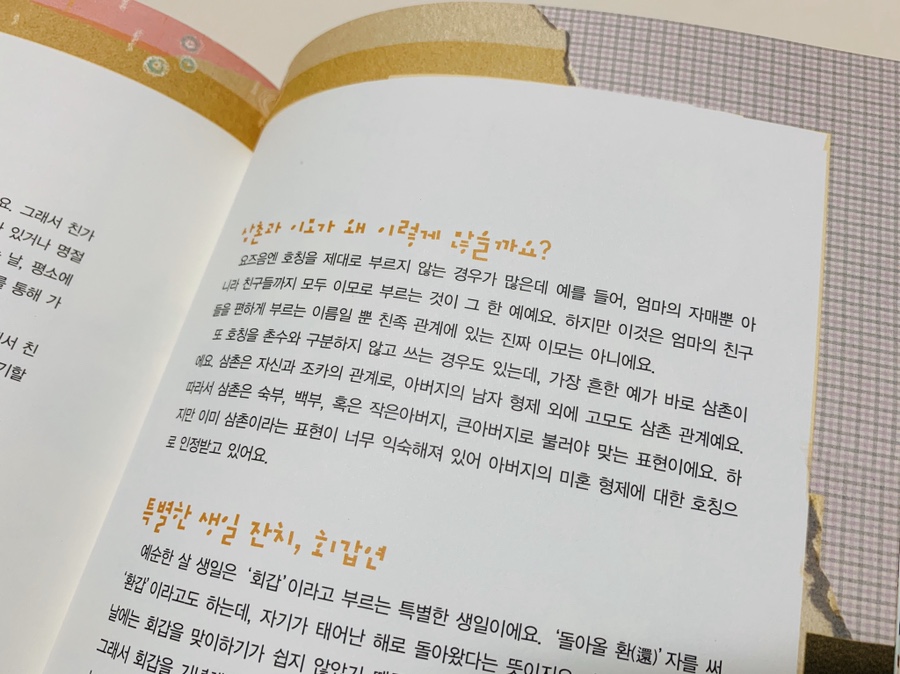 요. 그래서 친가
있거나 명절
날, 평소에
통해 가
서 친
기할
삼촌과 이모가 왜 이렇게 많을까요?
요즈음엔 호칭을 제대로 부르지 않는 경우가 많은데 예를 들어, 엄마의 자매뿐 아
니라 친구들까지 모두 이모로 부르는 것이 그 한 예예요. 하지만 이것은 엄마의 친구
들을 편하게 부르는 이름일 뿐 친족 관계에 있는 진짜 이모는 아니에요.
또 호칭을 촌수와 구분하지 않고 쓰는 경우도 있는데, 가장 흔한 예가 바로 삼촌이
에요. 삼촌은 자신과 조카의 관계로, 아버지의 남자 형제 외에 고모도 삼촌 관계예요.
따라서 삼촌은 숙부, 백부, 혹은 작은아버지, 큰아버지로 불러야 맞는 표현이에요. 하
지만 이미 삼촌이라는 표현이 너무 익숙해져 있어 아버지의 미혼 형제에 대한 호칭으
로 인정받고 있어요.
특별한 생일 잔치, 회갑연
예순한 살 생일은 '회갑'이라고 부르는 특별한 생일이에요. '돌아올 환(還)' 자를 써
'환갑'이라고도 하는데, 자기가 태어난 해로 돌아왔다는 뜻이지요
날에는 회갑을 맞이하기가 쉽지 않았기
그래서 회갑을